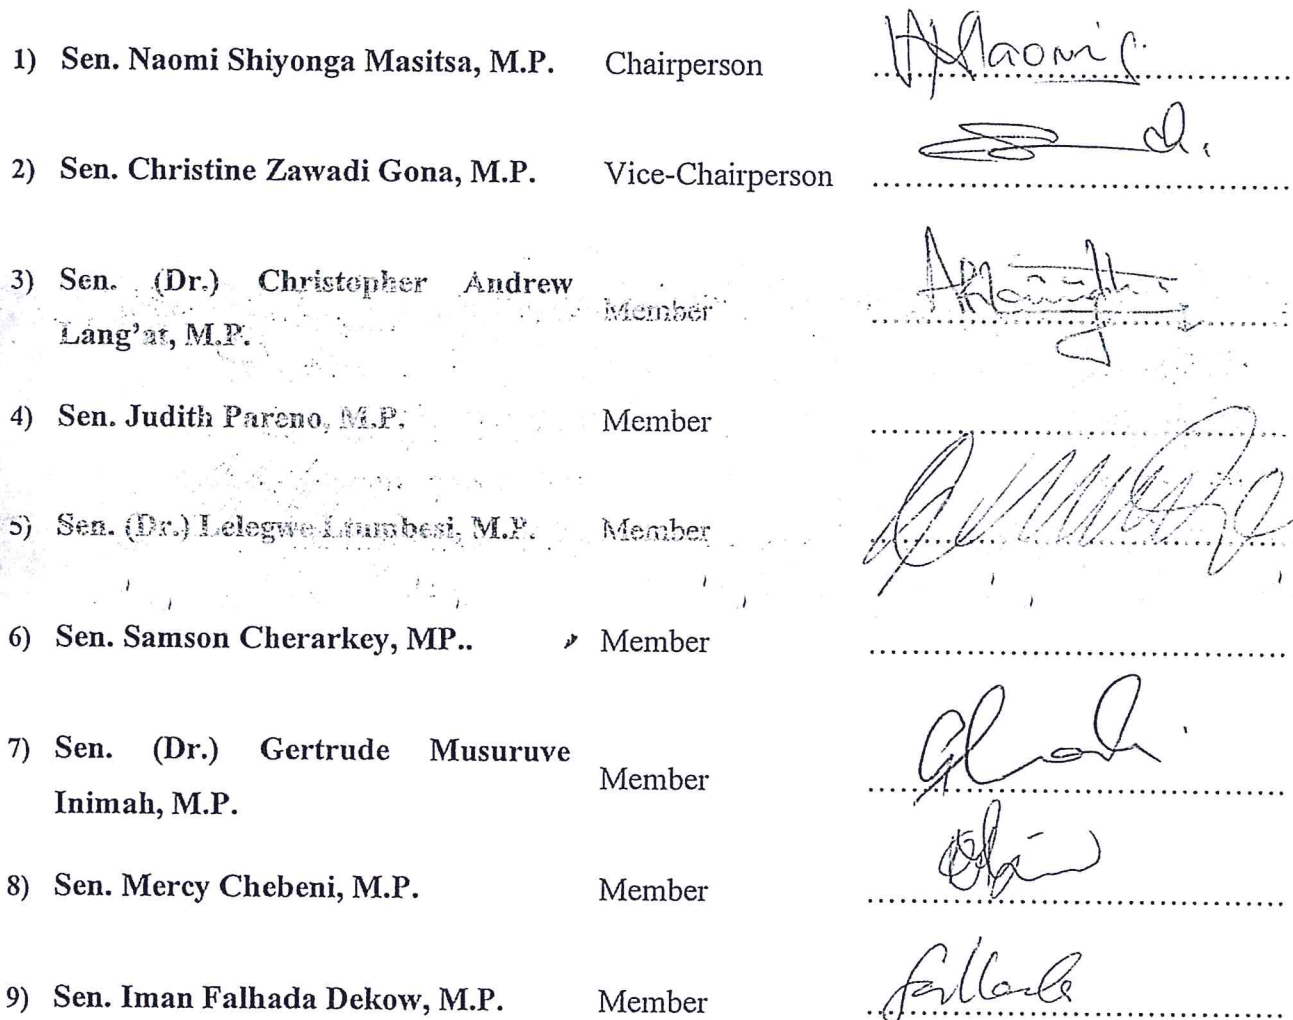 1) Sen. Naomi Shiyonga Masitsa, M.P. Chairperson ........................................
2) Sen. Christine Zawadi Gona, M.P. Vice-Chairperson ........................................
3) Sen. (Dr.) Christopher Andrew
Lang'at, M.P. Member ........................................
4) Sen. Judith Pareno, M.P. Member ........................................
5) Sen. (Dr.) Lelegwe Ltumbesi, M.P. Member ........................................
6) Sen. Samson Cherarkey, MP.. Member ........................................
7) Sen. (Dr.) Gertrude Musuruve
Inimah, M.P. Member ........................................
8) Sen. Mercy Chebeni, M.P. Member ........................................
9) Sen. Iman Falhada Dekow, M.P. Member ........................................